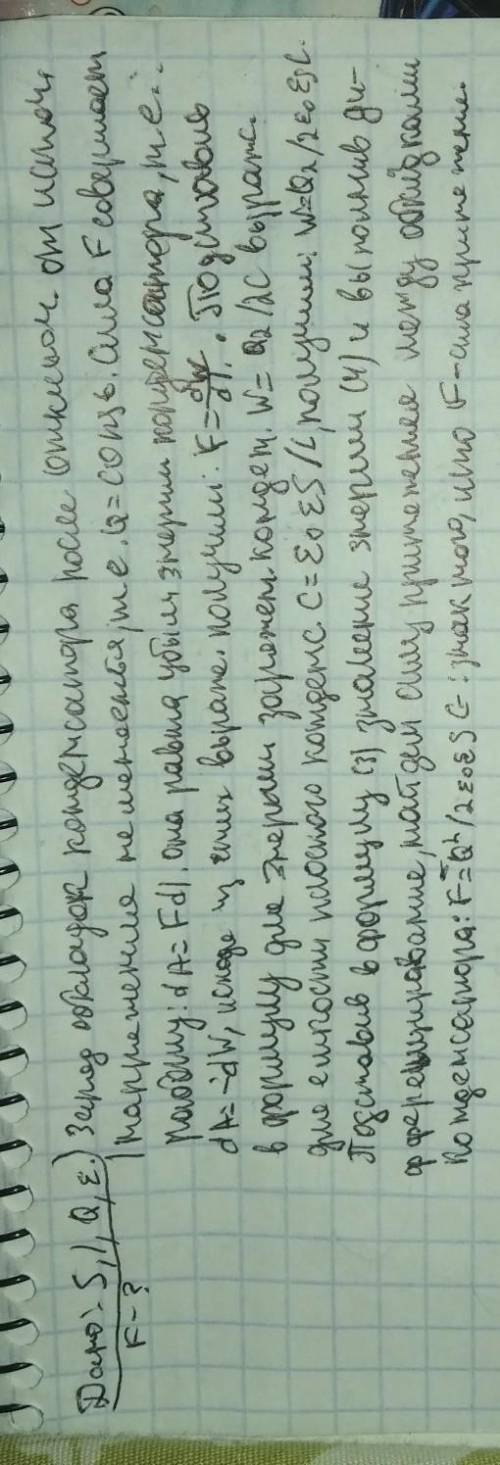 Дано: S, l, Q, ε.
F - ?
Заряд обкладок конденсатора после отключ. от источ.
напряжения не меняеться, т.е. Q = const. Сила F совершает
работу: dA = Fdl. она равна убыли энергии конденсатора, т.е.:
dA = -dW, исходя из этих выраже. получим: F = dW/dl. Подставив
в формулу для энергии заряжен. конден. W = Q2/2C выраж.
для емкости плоского конденс. C = ε0 εS/L, получим: W = Q2/2ε0 εS L.
Подставив в формулу (3) значение энергии (4) и выполнив ди-
фференцирование, найдем силу притяжения между обкладками
конденсатора: F = -Q²/2ε0εS G - : знак того, что F - сила притяжения.